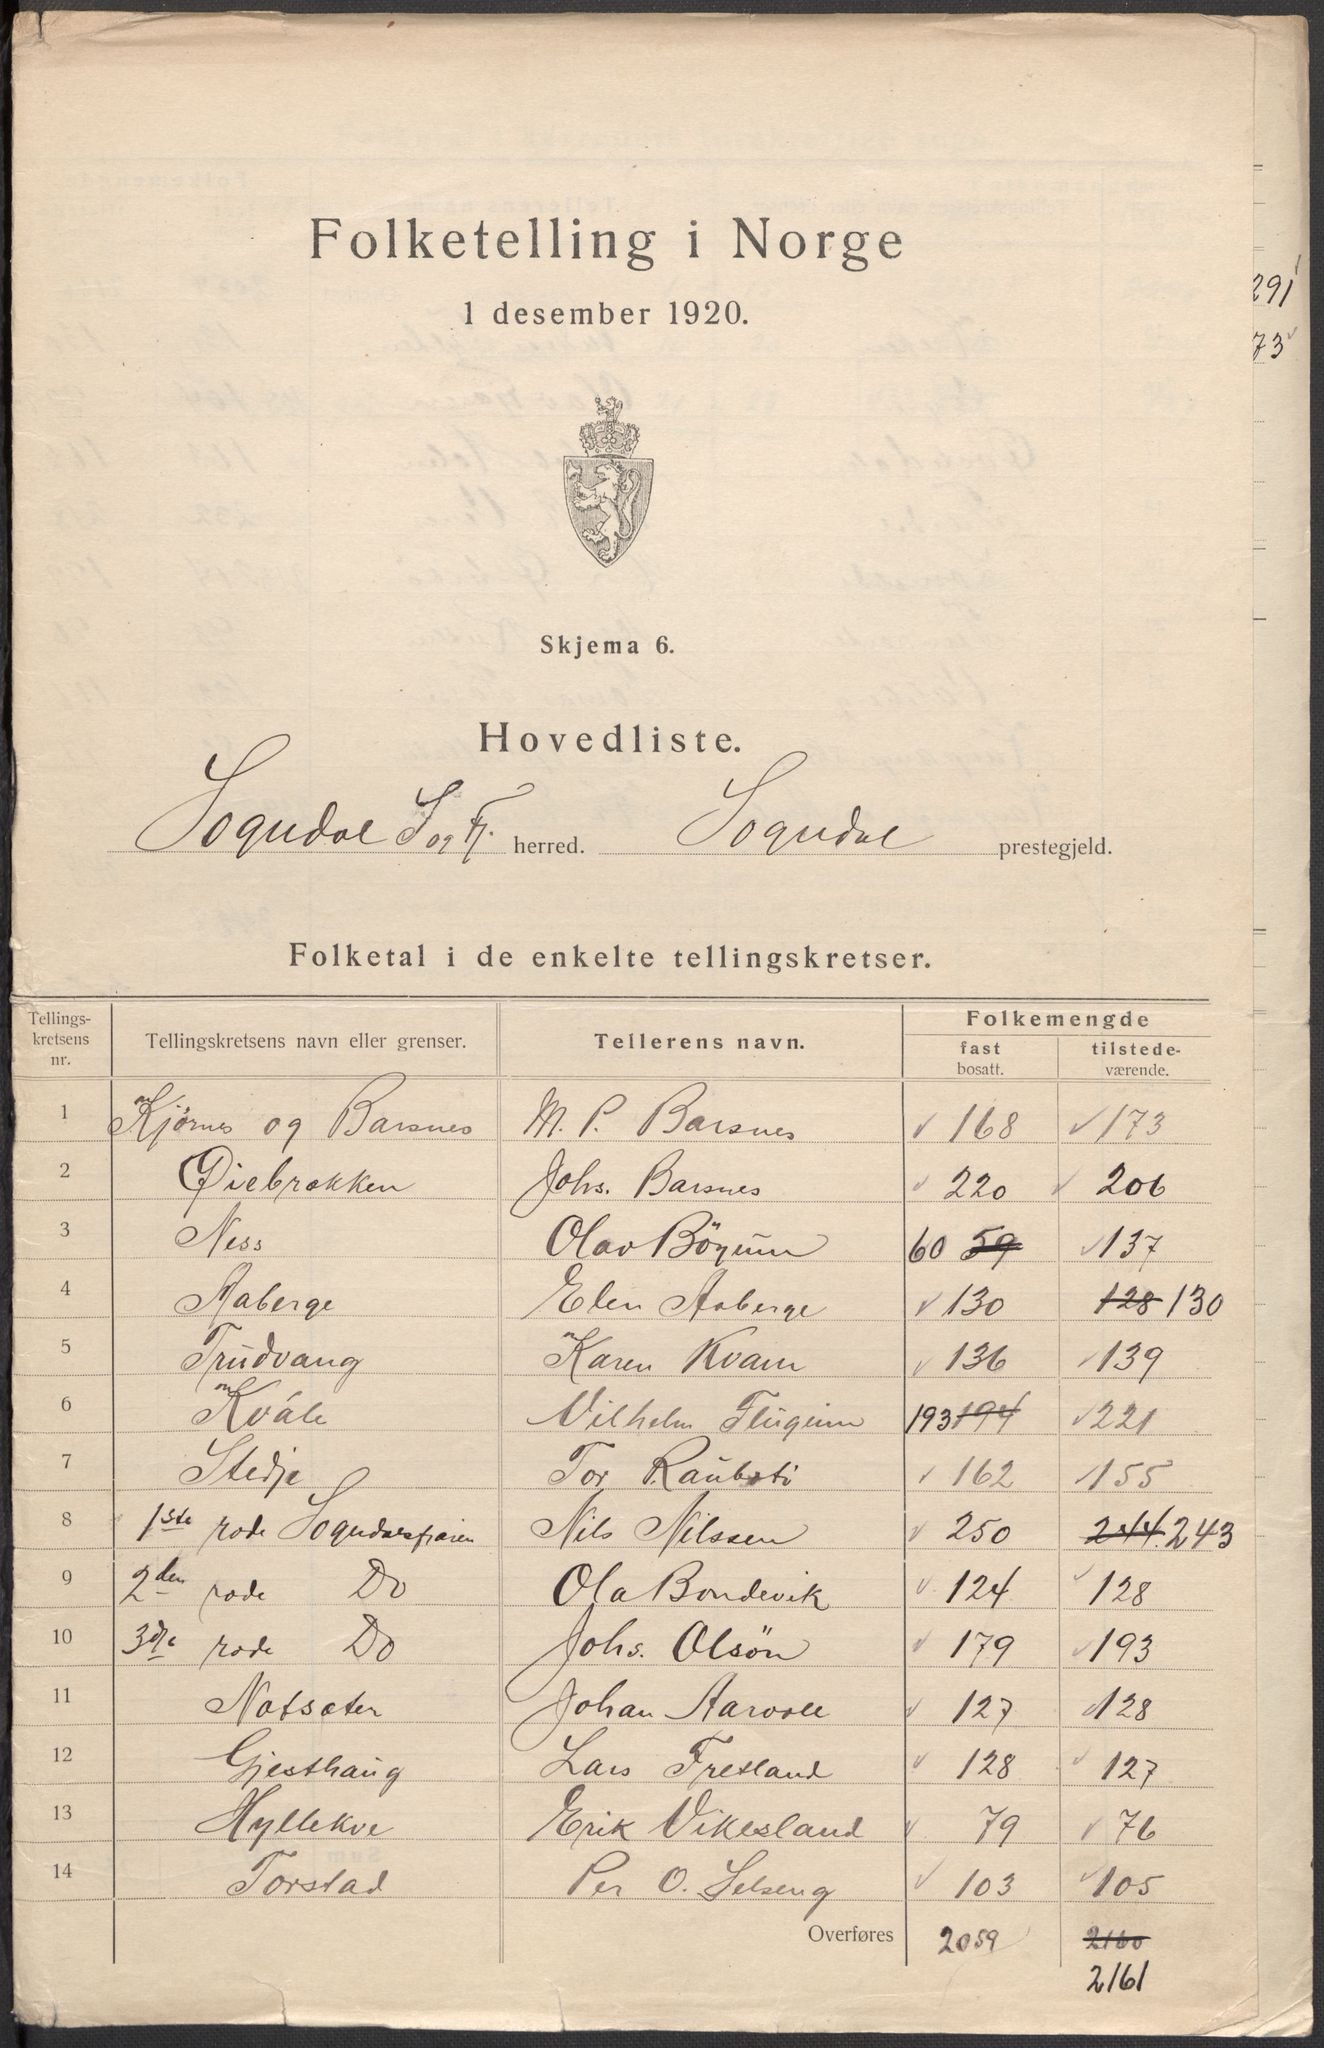 Folketelling i Norge
1 desember 1920.
291
73
Skjema 6.
Hovedliste.
Sogndal S og Fj. herred. Sogndal prestegjeld.
Folketal i de enkelte tellingskretser.
Tellings-kretsens nr. Tellingskretsens navn eller grenser. Tellerens navn. Folkemengde
fast bosatt. tilstede-værende.
1 Kjørnes og Barsnes M. P. Barsnes 168 173
2 Øiebrøkken Johs. Barsnes 220 206
3 Ness Olav Bøyum 60 59 137
4 Aaberge Elen Aaberge 130 128 130
5 Trudvang Karen Kvam 136 139
6 Kvåle Vilhelm Flugeim 193 194 221
7 Stedje Tor Raubsti 162 155
8 1ste rode Sogndalsfjæren Nils Nilssen 250 244. 243
9 2den rode Do Ola Bondevik 124 128
10 3dje rode Do Johs. Olsön 179 193
11 Nofsæter Johan Aarvoll 127 128
12 Gjesthaug Lars Fretland 128 127
13 Hyllekve Erik Vikesland 79 76
14 Torstad Per O. Selseng 103 105
Overføres 2059 2160
2161